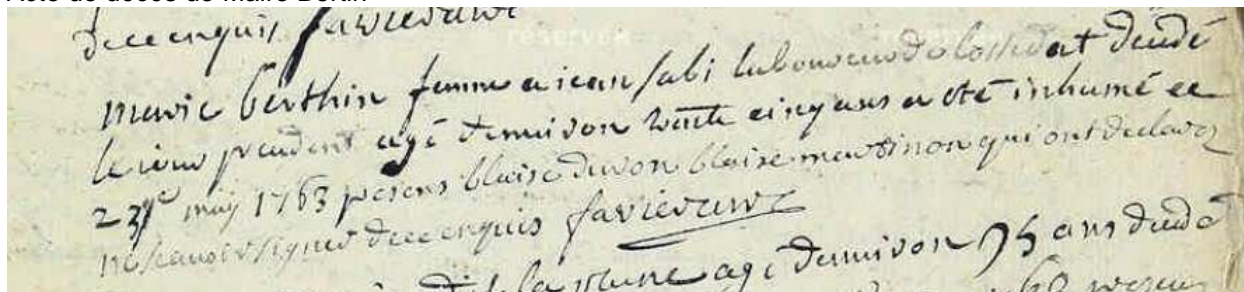 Acte de décès de Marie Bertin
de ce enquis favievicaire
marie berthin femme a jean fabi laboureur de lossedat décédé
le jour precedent agé d'environ trente cinq ans a été inhumé ce
23e may 1763 presens blaise duron blaise martinon qui ont declaré
ne scavoir signer de ce enquis
de la veille agé d'environ 75 ans décédé